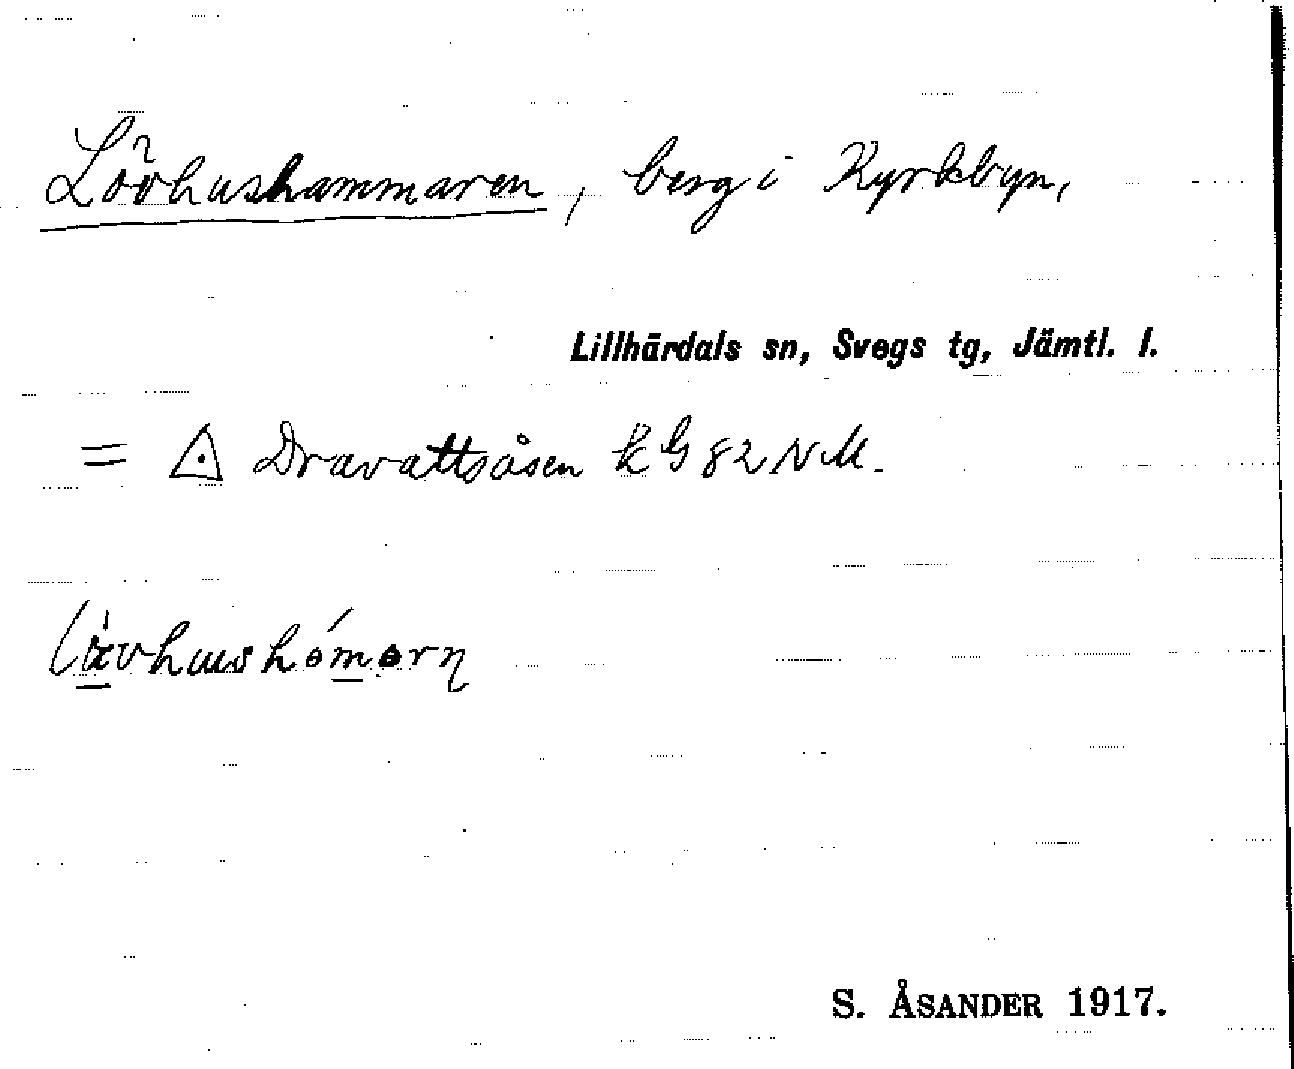 Lövhushammaren, berg i Kyrkbyn,
Lillhärdals sn, Svegs tg, Jämtl. l.
= Dravattsåsen k G 82 N M.
S. ÅSANDER 1917.